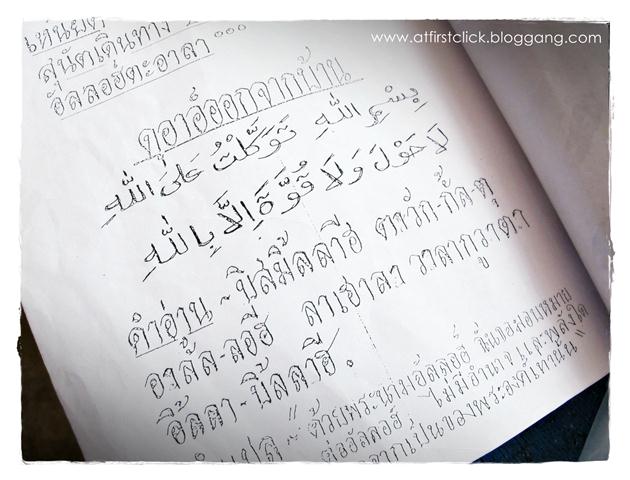 www.atfirstclick.bloggang.com
สุนัตเดินทาง
อัลลอฮ์ตะอาลา °°°
ดุอาอ์ออกจากบ้าน
بِسْمِ اللَّهِ تَوَكَّلْتُ عَلَى اللَّهِ
لَا حَوْلَ وَلَا قُوَّةَ إِلَّا بِاللَّهِ
คำอ่าน ~ บิสมิ้ลลาฮี ตะวัก-กัล-ตุ
อาลั้ล-ลอฮี ลาเฮาลา วาลากูวาตา
อิ้ลลา-บิ้ลลาฮิ.
" ด้วยพระนามอัลลอฮ์ ฉันขอมอบหมาย
ต่ออัลลอฮ์ ไม่มีอำนาจและพลังใด
นอกจากเป็นของพระองค์เท่านั้น "